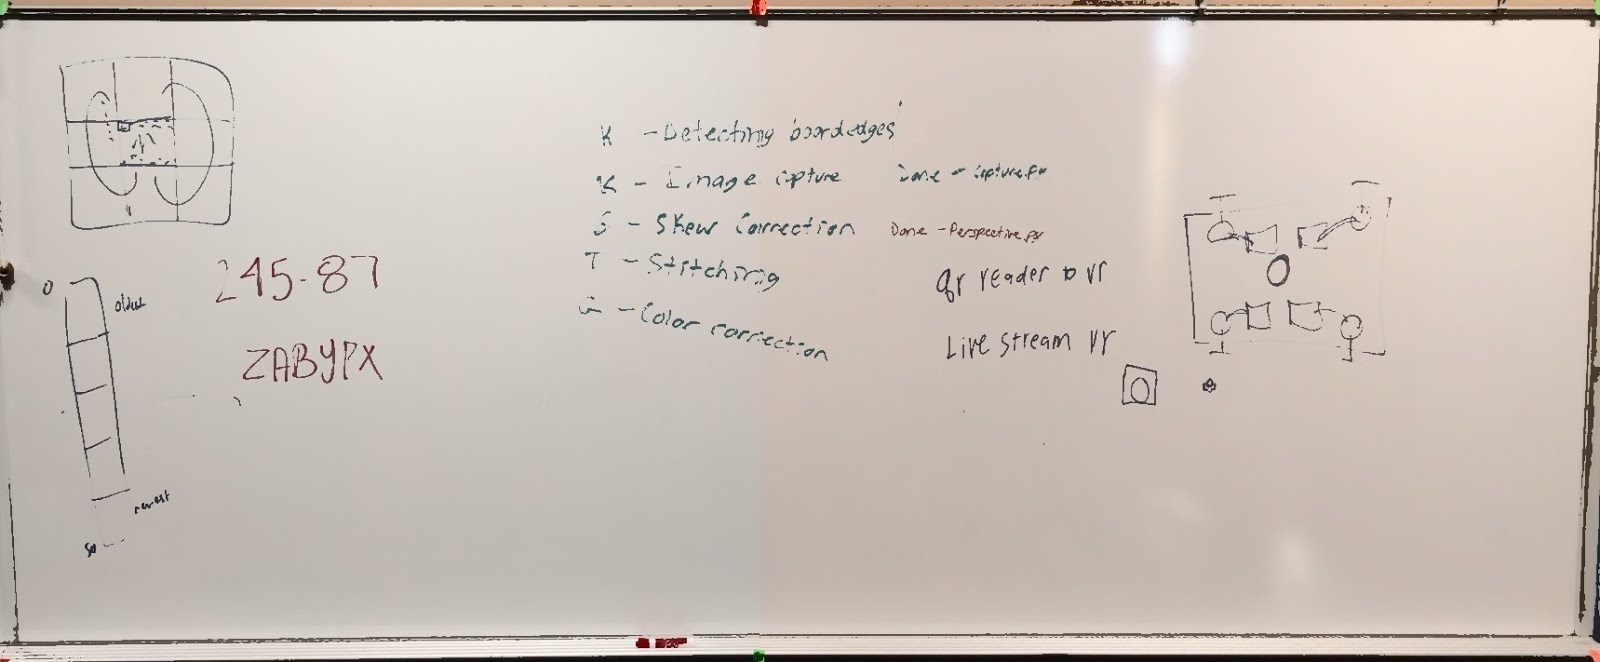 0
oldest
newest
50
245-87
ZABYPX
K - Detecting board edges
K - Image capture Done - Capture.py
S - Skew Correction Done - Perspective.py
T - Stitching
G - Color correction
qr reader to vr
Live stream vr